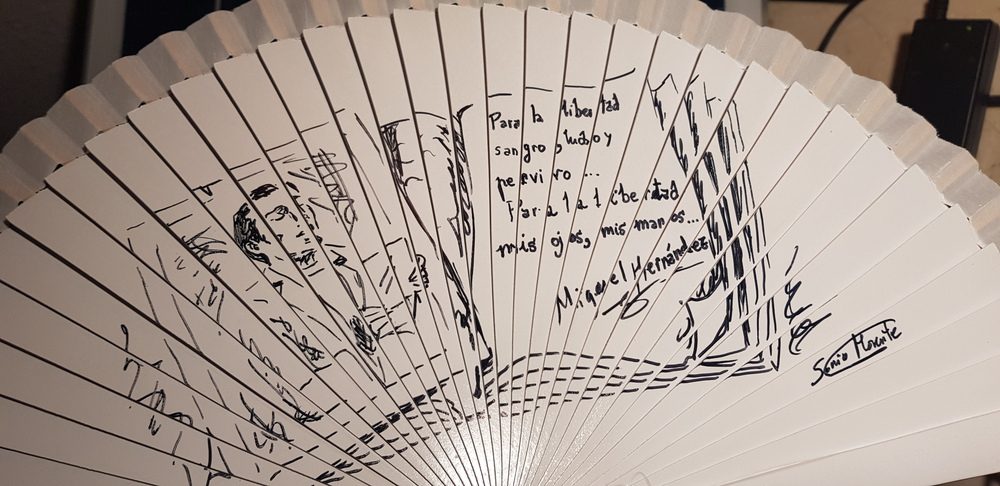 Para la libertad
sangro, lucho y
pervivo...
Para la libertad
mis ojos, mis manos...
Miguel Hernández